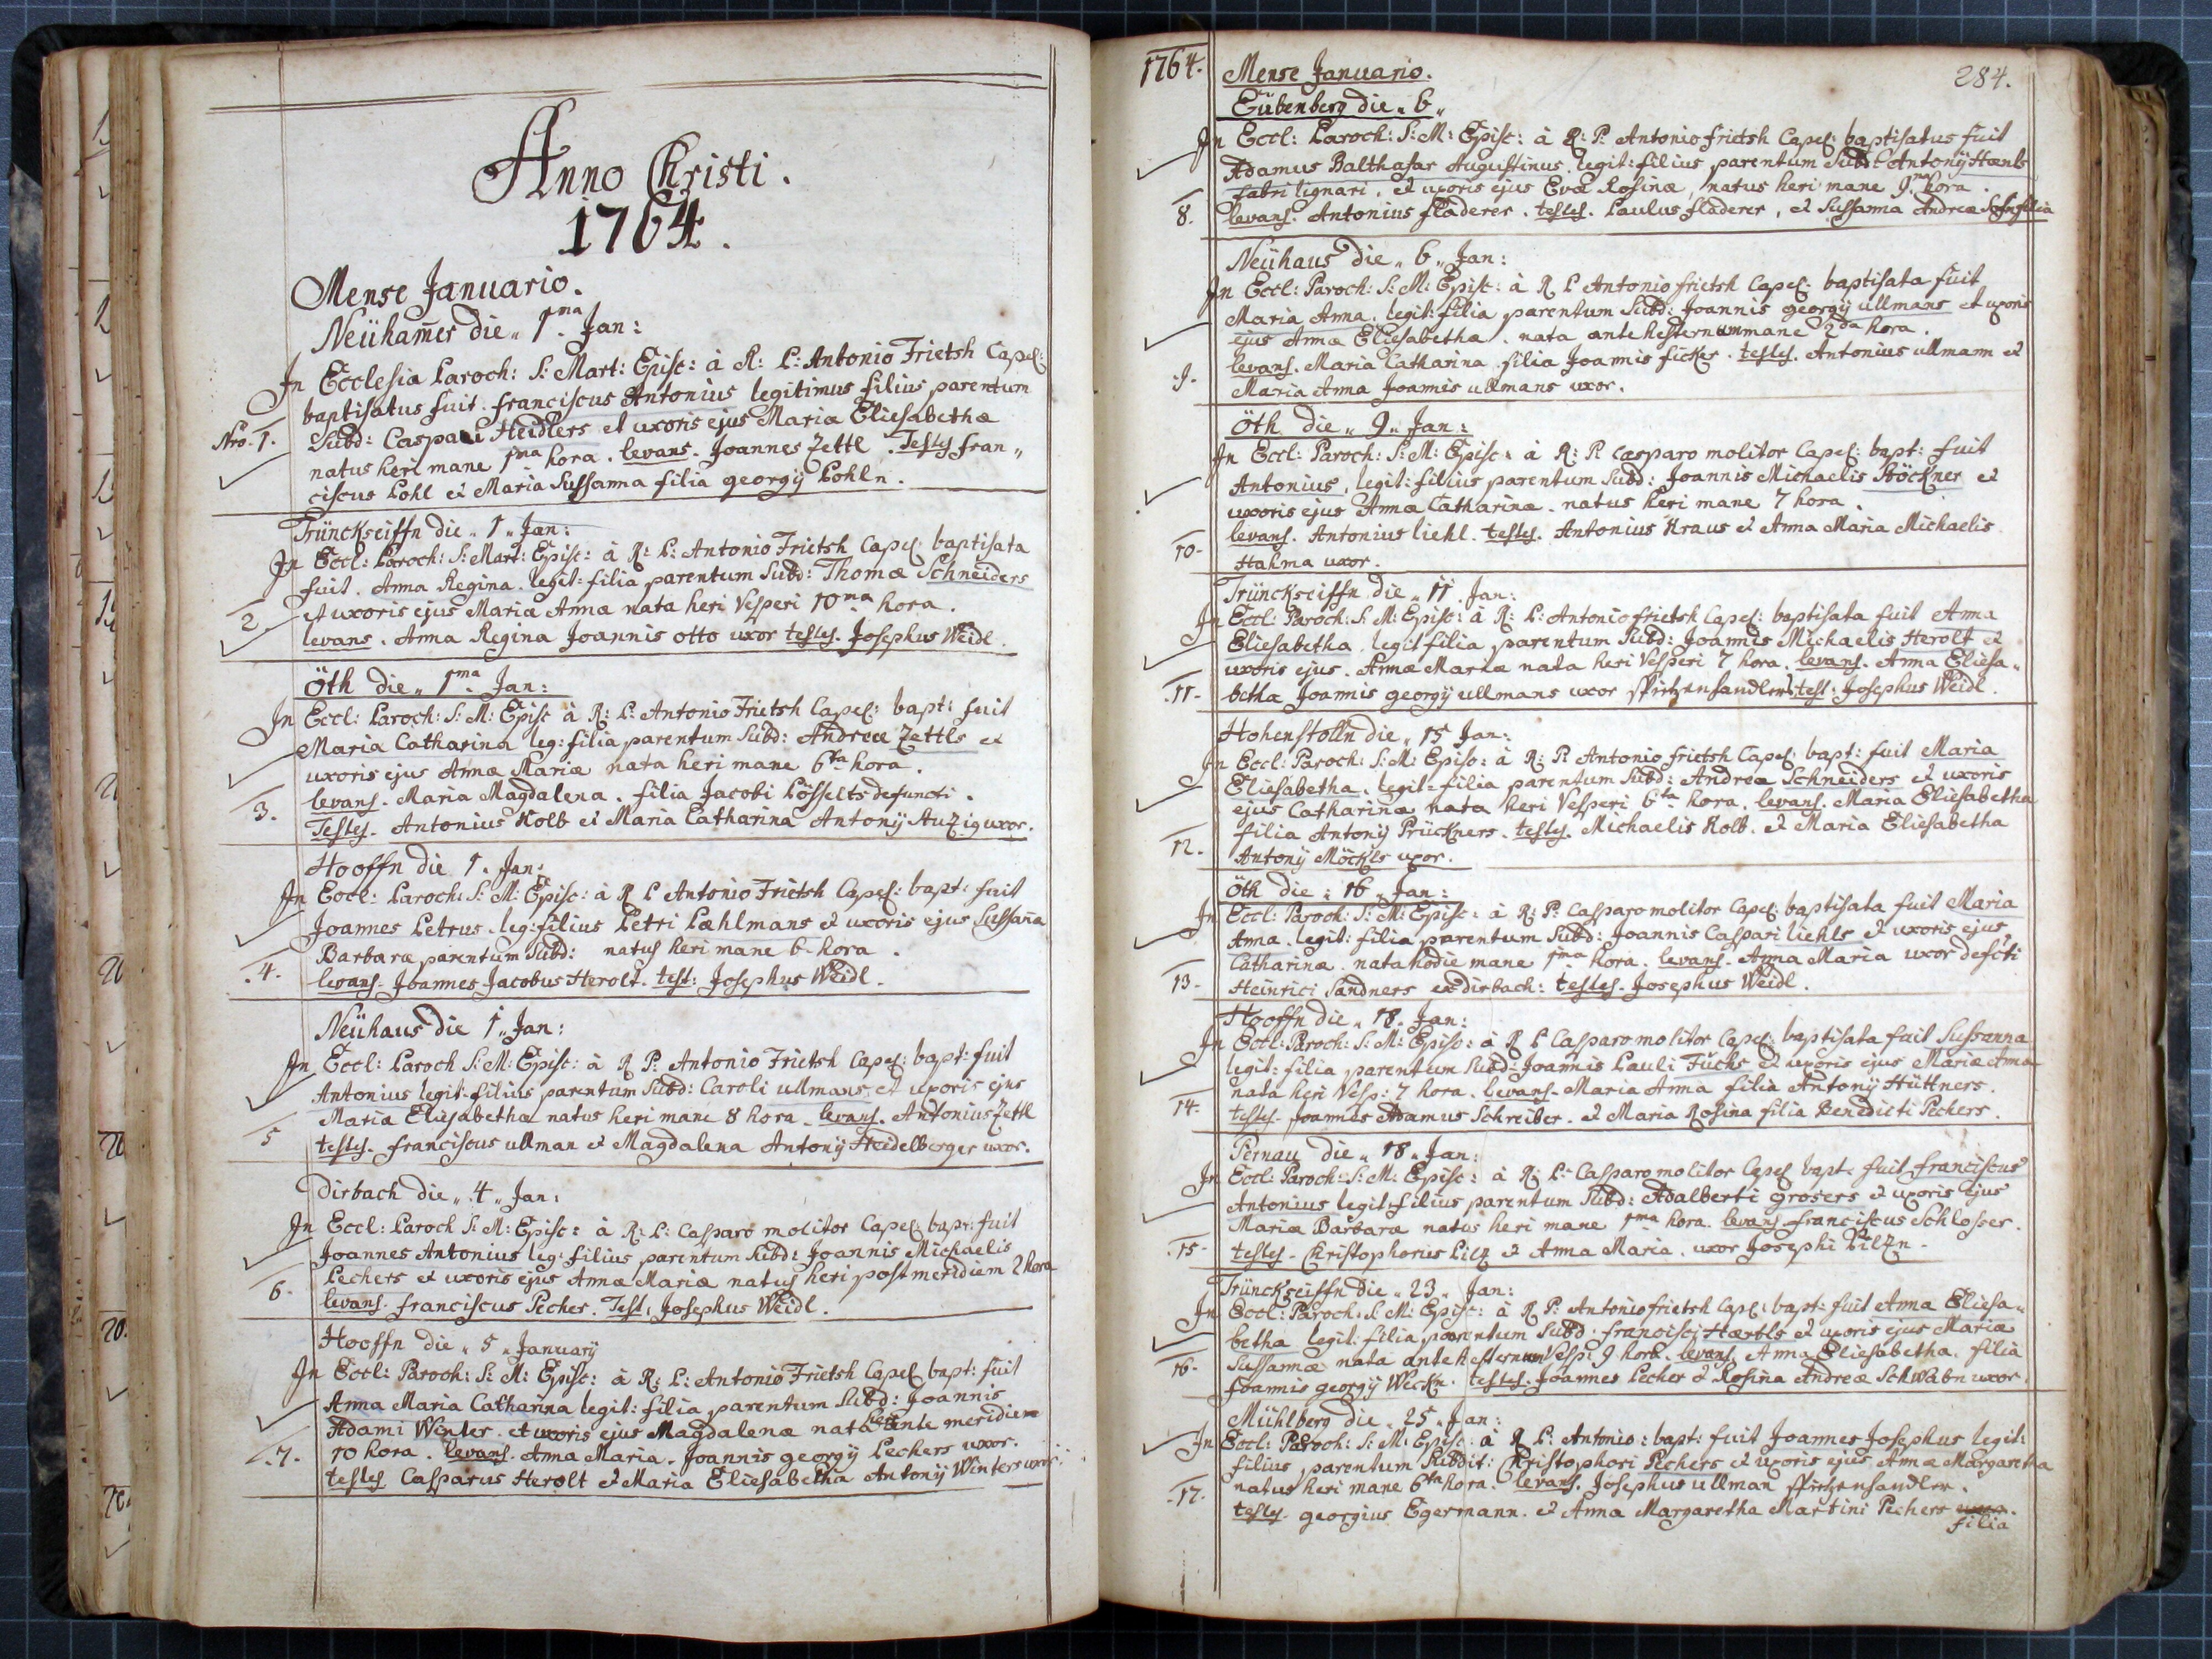 Anno Christi.
1764.
Mense Januario.
Neühamer die „ 1ma. Jan:
In Ecclesia Paroch: S: Mart: Episc: à R: P: Antonio Frietsh Capel:
baptisatus fuit. Franciscus Antonius legitimus filius parentum
Nro. 1. Subd: Caspari Heidlers et uxoris ejus Mariæ Eliesabethæ
natus heri mane 1ma hora. levans. Joannes Zettl. Testes fran„
ciscus Pohl et Maria Sussanna filia georgÿ Pohln.
Trünckseiffn die „ 1 „ Jan:
In Eccl: Paroch: S: Mart: Episc: à R: P: Antonio Frietsh Capel: baptisata
fuit. Anna Regina. legit: filia parentum Subd: Thomæ Schneiders
2. et uxoris ejus Mariæ Annæ nata heri Vesperi 10ma hora.
levans. Anna Regina Joannis otto uxor testes. Josephus Weidl.
Öth die „ 1ma. Jan:
In Eccl: Paroch: S: M: Episc à R: P: Antonio Frietsh Capel: bapt: fuit
Maria Catharina leg: filia parentum Subd: Andreæ Zettls et
uxoris ejus Annæ Mariæ nata heri mane 6ta hora.
levans. Maria Magdalena. filia Jacobi Pösselts defuncti.
3. Testes. Antonius Kolb et Maria Catharina Antonÿ Auzig uxor.
Hooffn die 1. Jan:
In Eccl: Paroch: S: M: Episc: à R P Antonio Frietsh Capel: bapt: fuit
Joannes Petrus. leg: filius Petri Pæhlmans et uxoris ejus Sussaña
Barbaræ parentum Subd: natus heri mane 6. hora.
.4. levans. Joannes Jacobus Herolt. test: Josephus Weidl.
Neühaus die 1 „ Jan:
In Eccl: Paroch S: M: Episc: à R P: Antonio Frietsh Capel: bapt: fuit
Antonius legit: filius parentum Subd: Caroli ullmans, et uxoris ejus
Maria Eliesabetha natus heri mane 8 hora. levans. Antonius Zettl
5 testes. franciscus ullman et Magdalena Antonÿ Heidelberger uxor.
Dirbach die „ 4 „ Jan:
In Eccl: Paroch S: M: Episc: à R: P: Casparo molitor Capel: bapt: fuit
Joannes Antonius leg: filius parentum Subd: Joannis Michaelis
Pechers et uxoris ejus Annæ Mariæ natus heri post meridiem 2 hora
6. levans. franciscus Pecher. Test: Josephus Weidl.
Hooffn die „ 5 „ Januarÿ
In Eccl: Paroch: S: M: Episc: à R: P: Antonio Frietsh Capel bapt: fuit
Anna Maria Catharina legit: filia parentum Subd: Joannis
Adami Winter. et uxoris ejus Magdalenæ nata heri ante meridiem
.7. 10 hora. levans. Anna Maria. Joannis georgÿ Pechers uxor.
testes Casparus Herolt et Maria Eliesabetha Antonÿ Winters uxor.
1764. Mense Januario. 284.
Eübenberg die „ 6 „
In Eccl: Paroch: S: M: Episc: à R: P: Antonio frietsh Capel: baptisatus fuit
Adamus Balthasar Augustinus. legit: filius parentum Subd: Antonÿ Hænls
fabri lignari. et uxoris ejus Evæ Rosinæ, natus heri mane 9na hora.
8. levans. Antonius fladerer. testes. Paulus fladerer, et Sussanna Andreæ filia
Neühaus die „ 6 „ Jan:
In Eccl: Paroch: S: M: Episc: à R P Antonio frietsh Capel: baptisata fuit
Maria Anna. legit: filia parentum Subd: Joannis georgÿ ullmans et uxoris
ejus Annæ Eliesabethæ. nata ante hesternum mane 2da hora.
levans. Maria Catharina filia Joannis ficker. testes. Antonius ullmann et
.9. Maria Anna Joannis ullmans uxor.
Öth die „ 9 „ Jan:
In Eccl: Paroch: S: M: Episc: à R: P. Casparo molitor Capel: bapt: fuit
Antonius. legit: filius parentum Subd: Joannis Michaelis Böckner et
uxoris ejus Annæ Catharinæ. natus heri mane 7 hora.
levans. Antonius liehl. testes. Antonius Kraus et Anna Maria Michaelis
10. Hahma uxor.
Trünckseiffn die „ 11. Jan:
In Eccl: Paroch: S: M: Episc: à R: P: Antonio frietsh Capel: baptisata fuit Anna
Eliesabetha. legit filia parentum Subd: Joannis Michaelis Herolt et
uxoris ejus. Annæ Mariæ nata heri Vesperi 7 hora. levans. Anna Eliesa„
.11. betha Joannis georgÿ ullmans uxor spitzenhandlers test: Josephus Weidl.
Hohenstolln die „ 15 Jan:
In Eccl: Paroch: S: M: Episc: à R: P: Antonio frietsh Capel: bapt: fuit Maria
Eliesabetha. legit: filia parentum Subd: Andreæ Schneiders et uxoris
ejus Catharinæ nata heri Vesperi 6ta hora. levans. Maria Eliesabetha
filia Antonÿ Prückners. testes. Michaelis Kolb. et Maria Eliesabetha
12. Antonÿ Möckls uxor.
Öth die „ 16 „ Jan:
In Eccl: Paroch: S: M: Episc: à R: P: Casparo molitor Capel: baptisata fuit Maria
Anna. legit: filia parentum Subd: Joannis Caspari liehls et uxoris ejus
Catharinæ. nata hodie mane 1ma hora. levans. Anna Maria uxor defcti
13. Heinrici Sandners ex dirbach: testes. Josephus Weidl.
Hooffn die „ 18. Jan:
In Eccl: Paroch: S: M: Episc: à R P Casparo molitor Capel: baptisata fuit Sussanna
legit: filia parentum Subd: Joannis Pauli Fuchs et uxoris ejus Mariæ Annæ
nata heri Vesp: 7 hora. levans. Maria Anna filia Antonÿ Hüttners.
14. testes. Joannes Adamus Schreiber. et Maria Rosina filia Benedicti Pechers.
Pernau die „ 18 „ Jan:
In Eccl: Paroch: S: M: Episc: à R: P: Casparo molitor Capel bapt: fuit franciscus
Antonius legit: filius parentum Subd: Adalberti grosers et uxoris ejus
Mariæ Barbaræ natus heri mane 1ma hora. levans franciscus Schlosser.
.15. testes. Christophorus Pilz et Anna Maria. uxor Josephi Pilzn.
Trünckseiffn die „ 23 „ Jan:
In Eccl: Paroch: S: M: Episc: à R P: Antonio frietsh Capel: bapt: fuit Anna Eliesa„
betha legit: filia parentum Subd: francisci Hærtls et uxoris ejus Mariæ
16. Sussannæ nata ante hesternum Vesp: 9 hora. levans Anna Eliesabetha. filia
Joannis georgÿ Weckn. testes. Joannes Pecher et Rosina Andreæ Schwabn uxor.
Mühlberg die „ 25 „ Jan:
In Eccl: Paroch: S: M: Episc: à R P: Antonio: bapt: fuit Joannes Josephus legit:
filius parentum Subdit: Christophori Pechers et uxoris ejus Annæ Margaretha
.17. natus heri mane 6ta hora. levans. Josephus ullman spitzenhandler.
testes. georgius Egermann. et Anna Margaretha Martini Pechers uxor.
filia